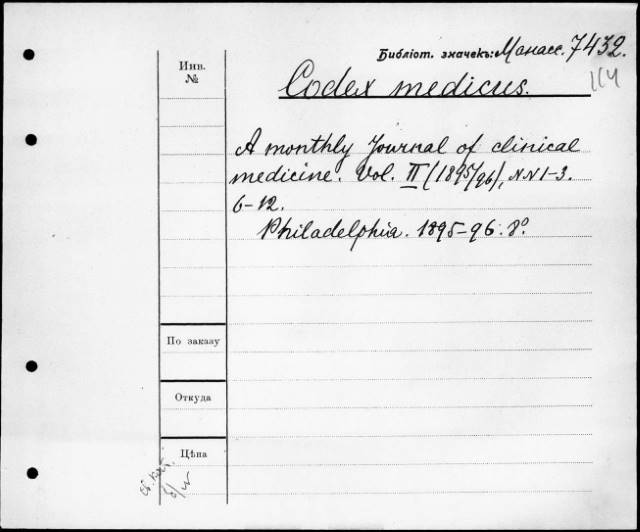 Библіот. значекъ: Манасс. 7432.
Инв.
№
Codex medicus.
A monthly Journal of clinical
medicine. Vol. II (1895/96), NN 1-3.
6-12.
Philadelphia. 1895-96. 8º.
По заказу
Откуда
Цѣна